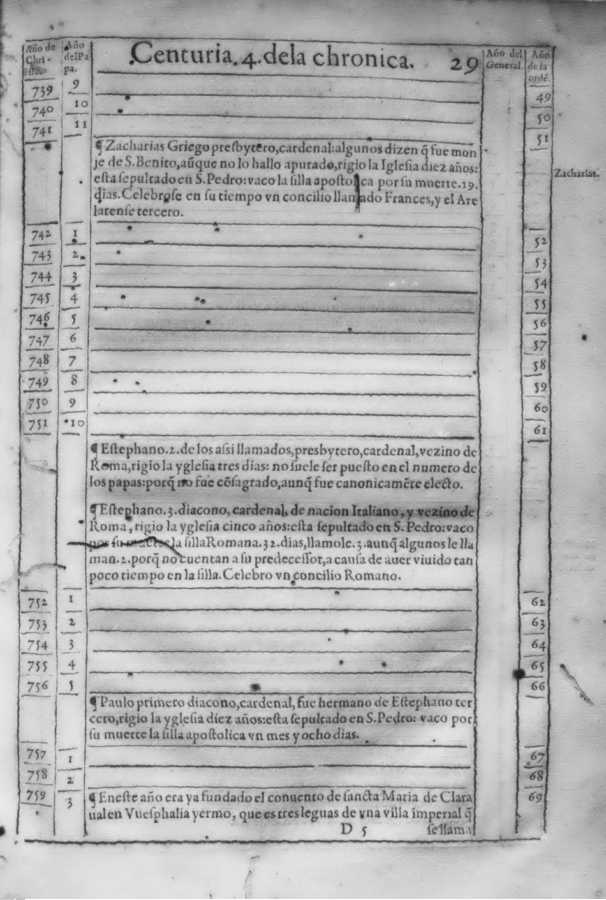 Año de Chri-sto. Año del Pa pa. Centuria. 4. dela chronica. 29 Año del General. Año de la ordē.
739 9 49
740 10 50
741 11 51
¶ Zacharias Griego presbytero, cardenal: algunos dizen q̃ fue mon
je de S. Benito, aũque no lo hallo apurado, rigio la Iglesia diez años:
esta sepultado en S. Pedro: vaco la silla apostolica por su muerte. 19.
dias. Celebrose en su tiempo vn concilio llamado Frances, y el Are
latense tercero.
Zacharias.
742 1 52
743 2. 53
744 3 54
745 4 55
746 5 56
747 6 57
748 7 58
749 8 59
750 9 60
751 10 61
¶ Estephano. 2. de los assi llamados, presbytero, cardenal, vezino de
Roma, rigio la yglesia tres dias: no suele ser puesto en el numero de
los papas: porq̃ no fue cõsagrado, aunq̃ fue canonicamẽte electo.
¶ Estephano. 3. diacono, cardenal, de nacion Italiano, y vezino de
Roma, rigio la yglesia cinco años: esta sepultado en S. Pedro: vaco
por su muerte la silla Romana. 32. dias, llamole. 3. aunq̃ algunos le lla
man. 2. porq̃ no cuentan a su predecessor, a causa de auer viuido tan
poco tiempo en la silla. Celebro vn concilio Romano.
752 1 62
753 2 63
754 3 64
755 4 65
756 5 66
¶ Paulo primero diacono, cardenal, fue hermano de Estephano ter
cero, rigio la yglesia diez años: esta sepultado en S. Pedro: vaco por
su muerte la silla apostolica vn mes y ocho dias.
757 1 67
758 2 68
759 3 69
¶ Eneste año era ya fundado el conuento de sancta Maria de Clara
ual en Vuesphalia yermo, que es tres leguas de vna villa imperial q̃
D 5 se llama